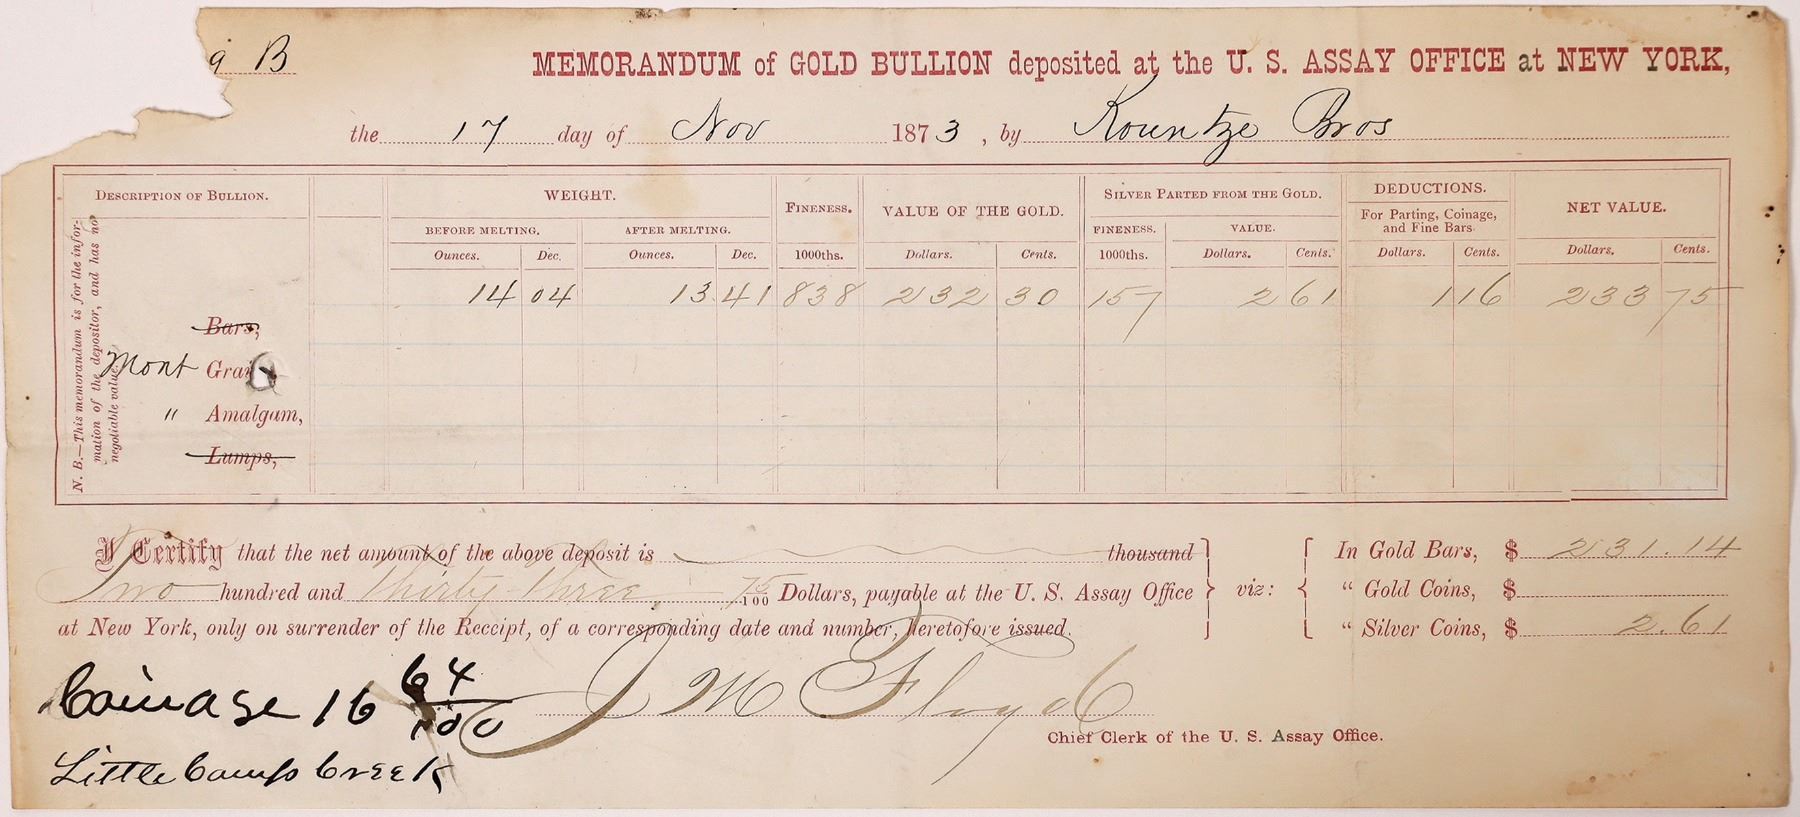 9 B
MEMORANDUM of GOLD BULLION deposited at the U. S. ASSAY OFFICE at NEW YORK,
the 17 day of Nov 1873, by Kountze Bros
DESCRIPTION OF BULLION.
WEIGHT.
BEFORE MELTING.
AFTER MELTING.
Ounces. Dec. Ounces. Dec.
FINENESS.
1000ths.
VALUE OF THE GOLD.
Dollars. Cents.
SILVER PARTED FROM THE GOLD.
FINENESS. VALUE.
1000ths. Dollars. Cents.
DEDUCTIONS.
For Parting, Coinage,
and Fine Bars.
Dollars. Cents.
NET VALUE.
Dollars. Cents.
14 04 13 41 838 232 30 157 2 61 1 16 233 75
N. B.—This memorandum is for the infor-
mation of the depositor, and has no
negotiable value.
Bars,
Mont Grai
" Amalgam,
Lumps,
I Certify that the net amount of the above deposit is thousand
Two hundred and thirty three 75/100 Dollars, payable at the U. S. Assay Office
at New York, only on surrender of the Receipt, of a corresponding date and number, heretofore issued.
viz:
In Gold Bars, $ 231.14
" Gold Coins, $
" Silver Coins, $ 2.61
Coinage 16 64/100
J M Floyd
Chief Clerk of the U. S. Assay Office.
Little Camp Creek